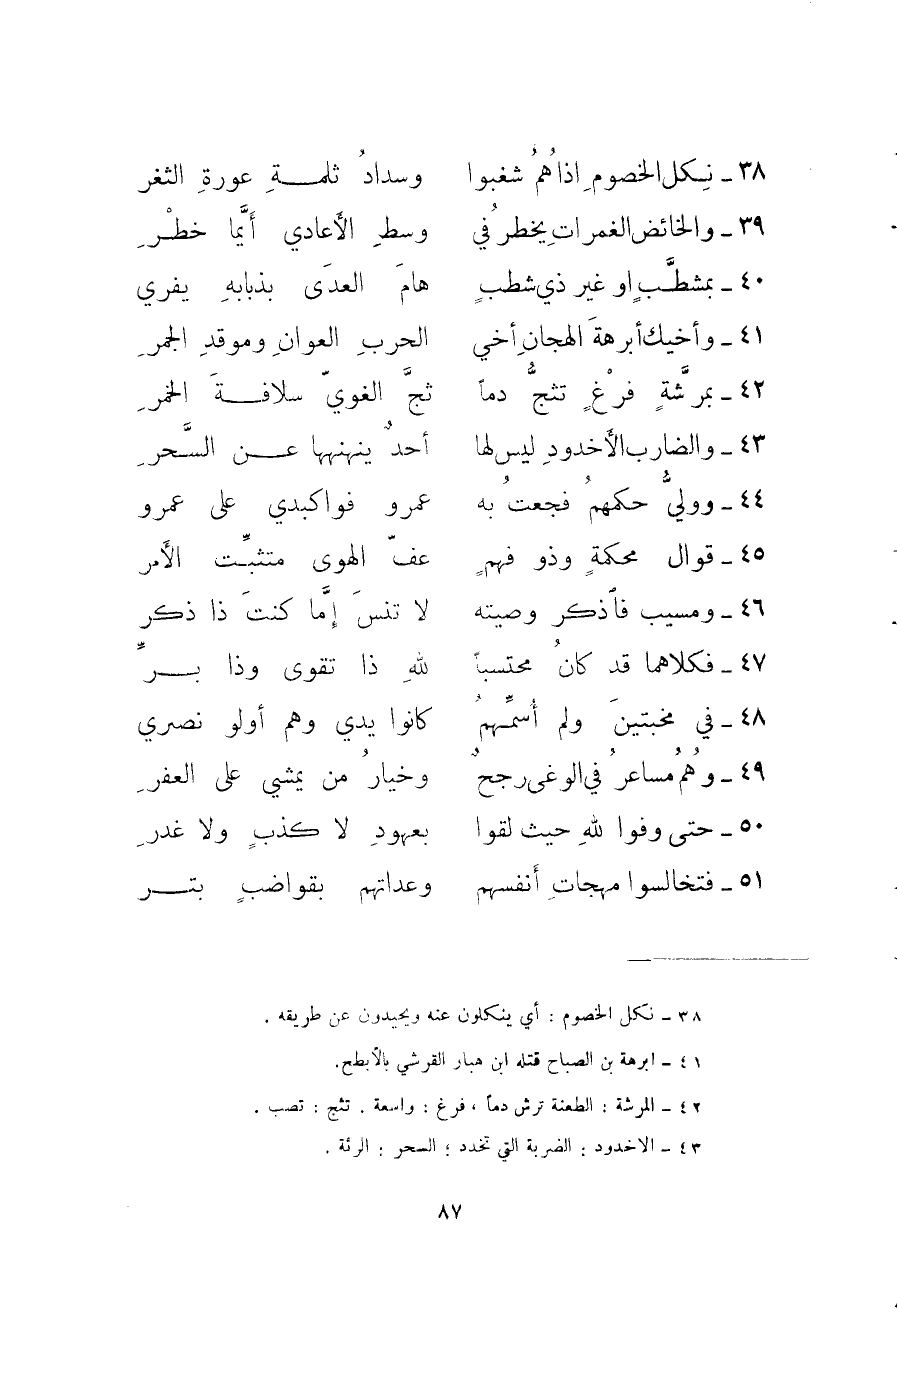 ٣٨ ـ نِكلِ الخصومِ اذا همُ شغبوا وسدادُ ثلمـــةِ عورةِ الثغر
٣٩ ـ والخائضُ الغمراتِ يخطرُ في وسطِ الأعادي أيَّما خطْرِ
٤٠ ـ بمشطَّبٍ او غير ذي شطبٍ هامَ العدَى بذبابهِ يفري
٤١ ـ وأخيك أبرهةَ الهجانِ أخي الحربِ العوانِ وموقدِ الجمرِ
٤٢ ـ بمرشَّةٍ فرْغٍ تثجُّ دماً ثجَّ الغويّ سلافـــةَ الخمرِ
٤٣ ـ والضاربُ الأخدودِ ليس لها أحدٌ ينهنهها عـــن السَّحرِ
٤٤ ـ ووليُّ حكمهمُ فجعتُ به عمرو فواكبدي على عمرو
٤٥ ـ قوال محكمةٍ وذو فهمٍ عفّ الهوى متثبِّت الأمر
٤٦ ـ ومسيب فأذكر وصيته لا تنسَ إمَّا كنتَ ذا ذكر
٤٧ ـ فكلاهما قد كانُ محتسباً للهِ ذا تقوى وذا بـــرِّ
٤٨ ـ في مخبتينَ ولم أسمِّهمُ كانوا يدي وهم أولو نصري
٤٩ ـ وهمُ مساعرُ في الوغى رجحٌ وخيارُ من يمشي على العفرِ
٥٠ ـ حتى وفوا للهِ حيث لقوا بعهودِ لا كذبٍ ولا غدرِ
٥١ ـ فتخالسوا مهجاتِ أنفسهم وعداتهم بقواضبٍ بتـــر
٣٨ ـ نكل الخصوم : أي ينكلون عنه ويحيدون عن طريقه .
٤١ ـ ابرهة بن الصباح قتله ابن هبار القرشي بالأبطح.
٤٢ ـ المرشة : الطعنة ترش دماً ، فرغ : واسعة . تثج : تصب .
٤٣ ـ الاخدود : الضربة التي تخدد ؛ السحر : الرئة .
٨٧